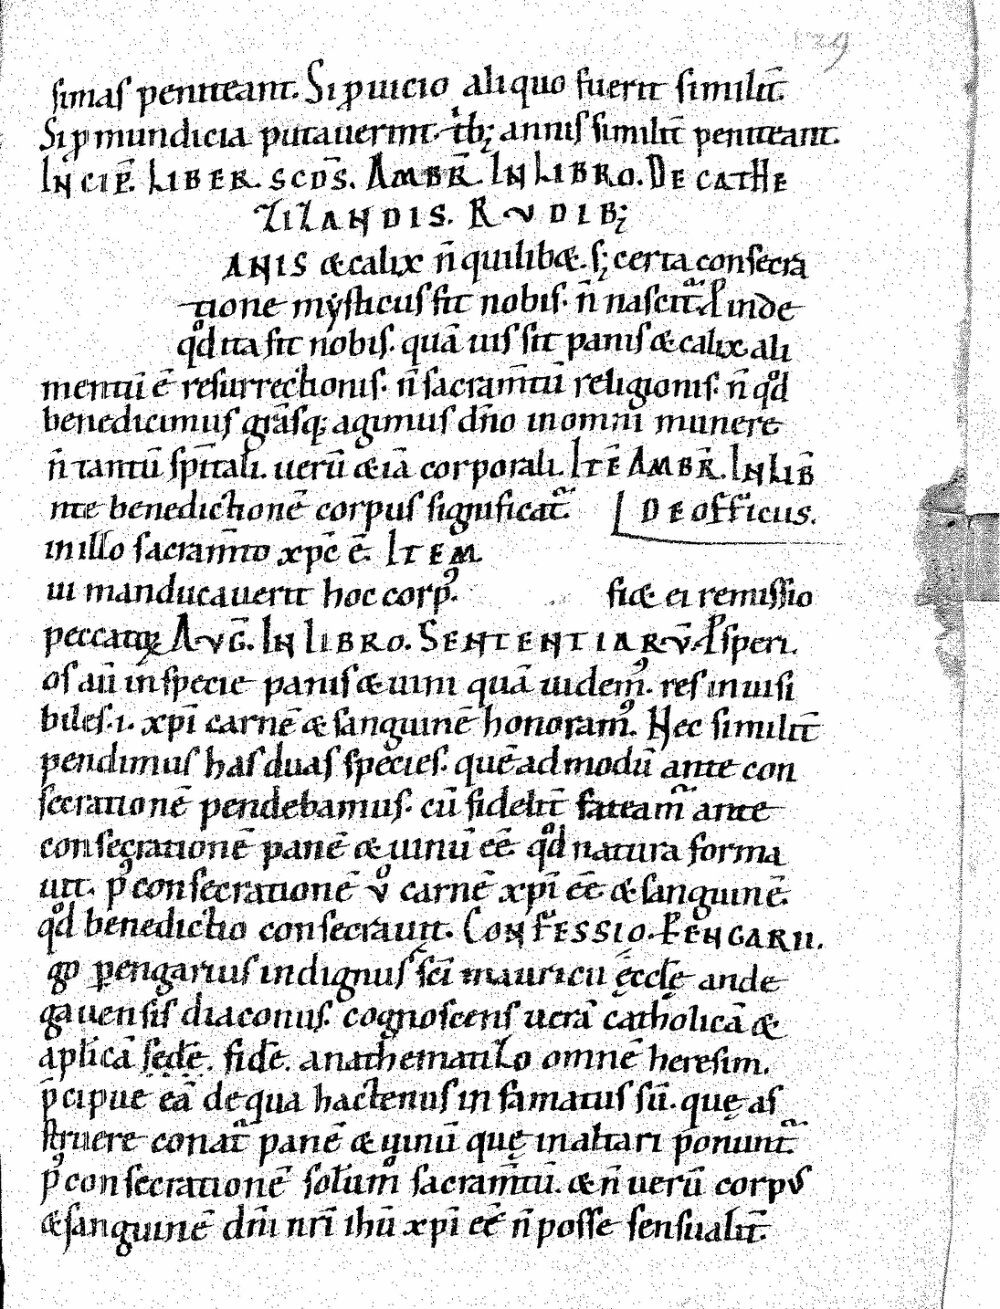 simas peniteant. Si ꝑ uicio aliquo fuerit similit̄.
Si ꝑ mundicia putauerint. tb; annis similit̄ peniteant.
INCIP̄. LIBER. SC̄DS. AMBR̄. IN LIBRO. DE CATHE
ZIZANDIS. RVDIB;
ANIS &calix n̄ quilib&. s; certa consecra
tione mysticus fit nobis. n̄ nascit᷒. Proinde
qd̊ ita fit nobis. quā uis sit panis & calix ali
mentū ē resurrectionis. n̄ sacram̄tū religionis. n̄ qd̊
benedicimus grā̄sq; agimus dn̄o in omni munere
n̄ tantū sp̄itali. uerū &iā corporali. ITĒ AMBR̄. IN LIB̄
nte benedictionē corpus significat᷒. DE officiis.
in illo sacram̄to xp̄c ē. ITEM
ui manducauerit hoc corpꝰ. fi& ei remissio
peccatoꝝ AVḠ. IN LIBRO. SENTENTIARV̄. Prosperi.
os aū in specie panis & uini quā uidemꝰ. res inuisi
biles .i. xp̄i carnē & sanguinē honoramꝰ. Nec similit̄
pendimus has duas species. quē ad modū ante con
secrationē pendebamus. cū fidelit̄ fateamꝰ ante
consecrationē panē & uinū eē. qd̊ natura forma
uit. pꝰ consecrationē v̊ carnē xp̄i eē & sanguinē.
qd̊ benedictio consecrauit. CONFESSIO. PENGARII.
go pengarius indignus sc̄i mauricii ęcclę̄ ande
gauensis diaconus. cognoscens uerā catholicā &
aplicā̄ fidē. anathematizo omnē heresim.
p̄cipue eā de qua hactenus infamatus sū. quę as
struere conat᷒ panē & uinū quę in altari ponunt᷒.
pꝰ consecrationē solum̊ sacram̄tū. & n̄ uerū corpus
&sanguinē dn̄i nr̄i ihū xp̄i eē n̄ posse sensualit̄.